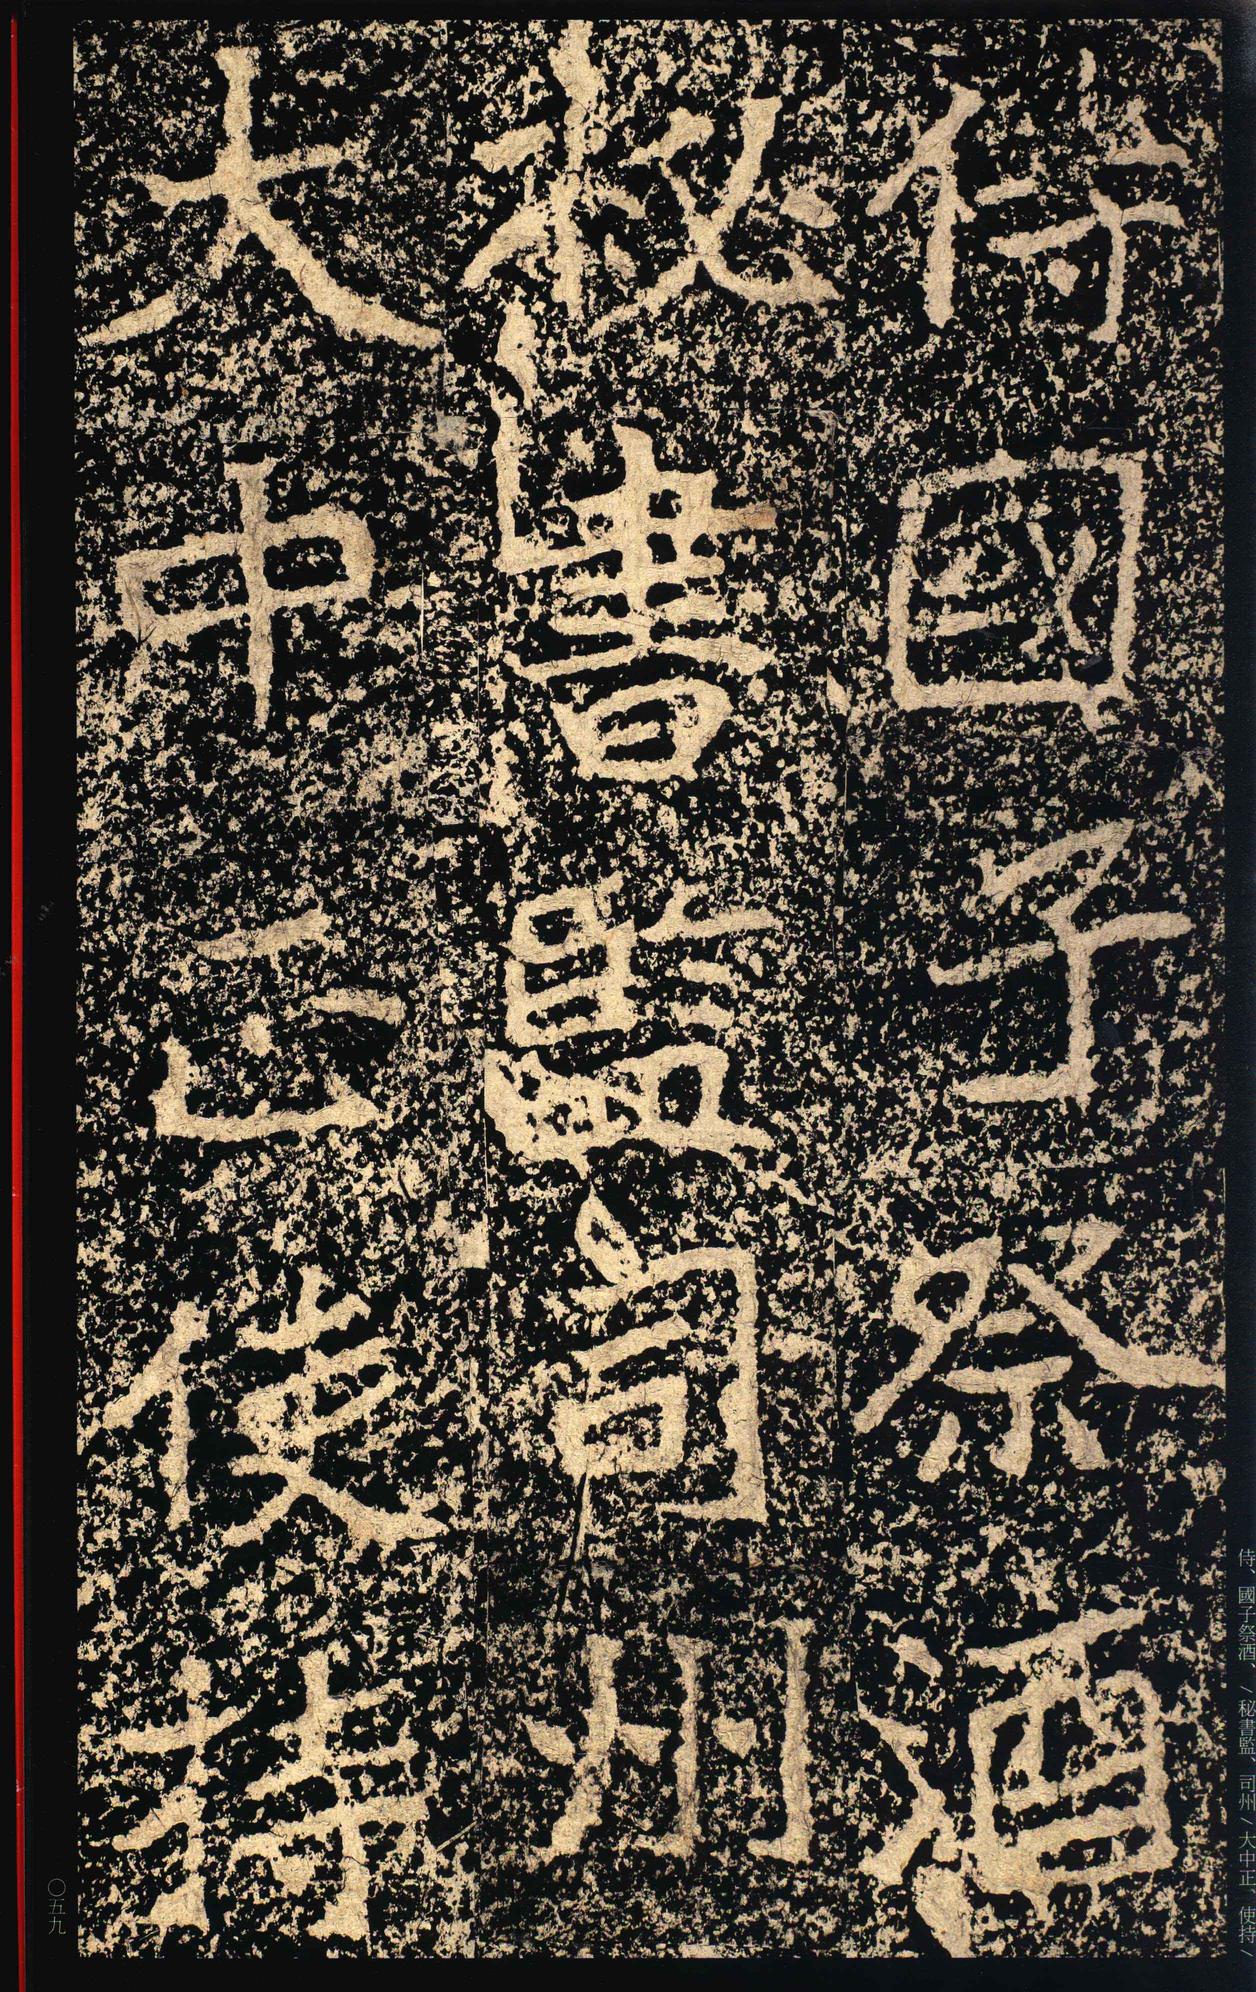 侍國子祭酒
秘書監司州
大中正使持
侍、國子祭酒、/秘書監、司州/大中正、使持/
〇五九